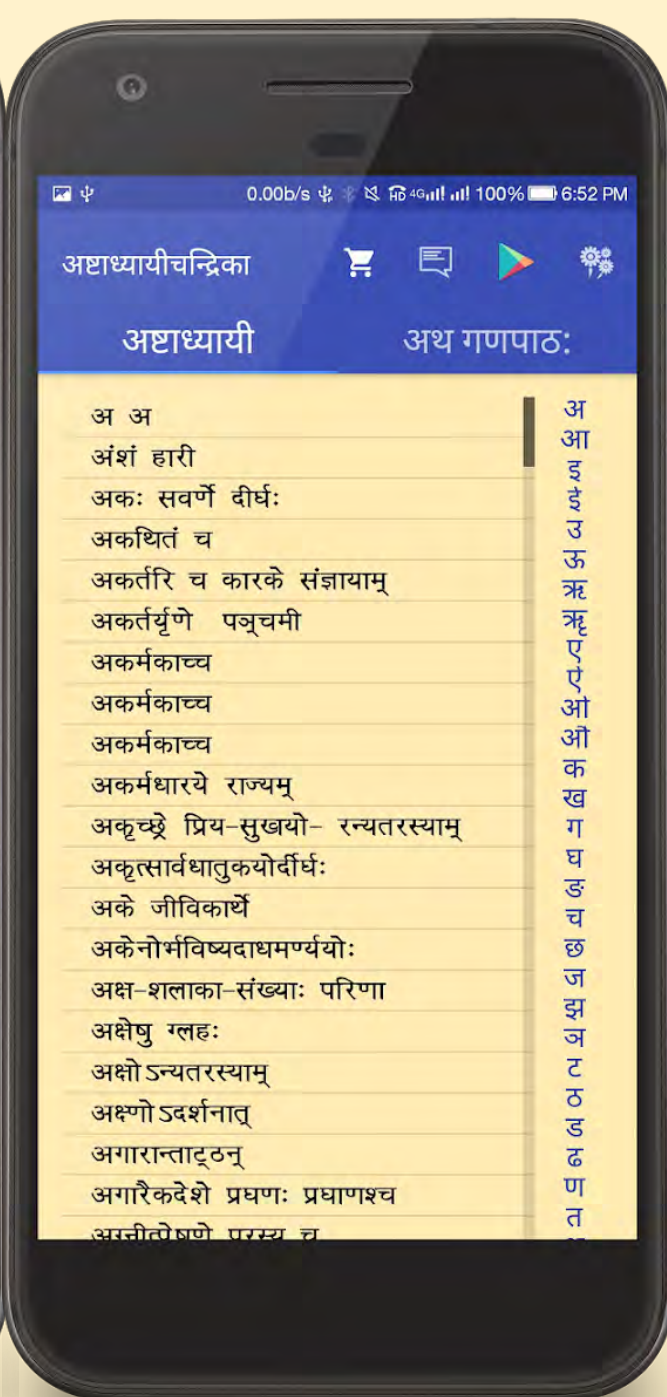 0.00b/s HD 4G 100% 6:52 PM
अष्टाध्यायीचन्द्रिका
अष्टाध्यायी अथ गणपाठः
अ अ
अंशं हारी
अकः सवर्णे दीर्घः
अकथितं च
अकर्तरि च कारके संज्ञायाम्
अकर्तर्यृणे पञ्चमी
अकर्मकाच्च
अकर्मकाच्च
अकर्मकाच्च
अकर्मधारये राज्यम्
अकृच्छ्रे प्रिय-सुखयो- रन्यतरस्याम्
अकृत्सार्वधातुकयोर्दीर्घः
अके जीविकार्थे
अकेनोर्भविष्यदाधमर्ण्ययोः
अक्ष-शलाका-संख्याः परिणा
अक्षेषु ग्लहः
अक्षोऽन्यतरस्याम्
अक्ष्णोऽदर्शनात्
अगारान्ताट्ठन्
अगारैकदेशे प्रघणः प्रघाणश्च
अग्नीत्प्रेषणे परस्य च
अ
आ
इ
ई
उ
ऊ
ऋ
ॠ
ए
ऐ
ओ
औ
क
ख
ग
घ
ङ
च
छ
ज
झ
ञ
ट
ठ
ड
ढ
ण
त